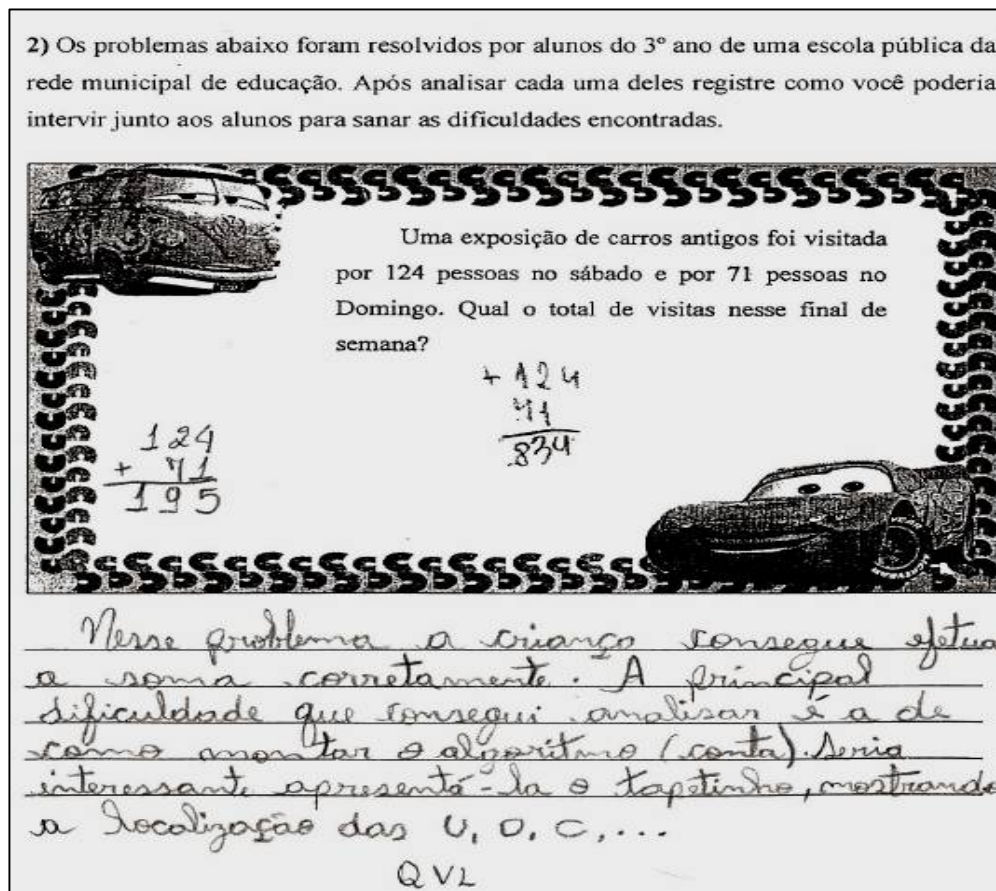 2) Os problemas abaixo foram resolvidos por alunos do 3º ano de uma escola pública da
rede municipal de educação. Após analisar cada uma deles registre como você poderia
intervir junto aos alunos para sanar as dificuldades encontradas.
Uma exposição de carros antigos foi visitada
por 124 pessoas no sábado e por 71 pessoas no
Domingo. Qual o total de visitas nesse final de
semana?
+ 124
71
834
124
+ 71
195
Nesse problema a criança consegue efetua
a soma corretamente. A principal
dificuldade que consegui analisar é a de
como montar o algoritmo (conta). Seria
interessante apresentá-la o tapetinho, mostrando
a localização das U, D, C, ...
QVL